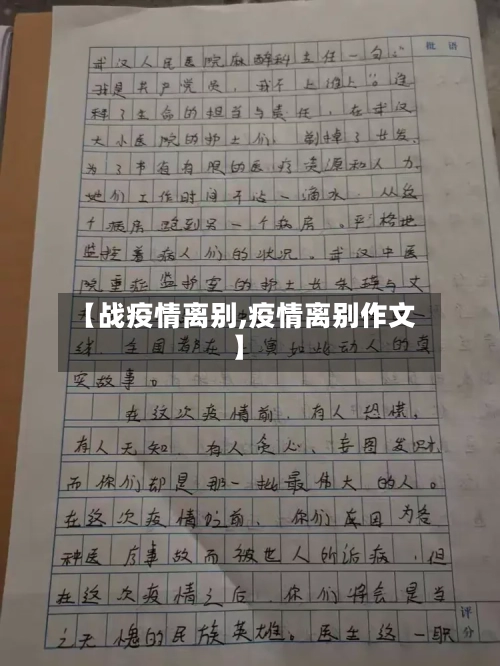 批 语
武汉人民医院麻醉科主任一句："
我是共产党员，我不上谁上"。诠
释了生命的担当与责任，在武汉
大小医院的护士们，剃掉了女发，
为了节省有限的医疗资源和人力，
她们工作时间不沾一滴水，从这
个病房跑到另一个病房。严格地
监控着病人们的状况。武汉中医
院重症监护室的护士长朱瑛与丈
【战疫情离别,疫情离别作文
】
线，全国都在上演如此动人的真
实故事。
在这次疫情前，有人恐慌，
有人无知，有人贪心，妄图发财，
而你们却是那一批最伟大的人。
在这次疫情之前，你们或因为各
种医疗事故而被世人所诟病，但
在这次疫情之后，你们将会是当
之无愧的民族英雄。医生这一职
评
分